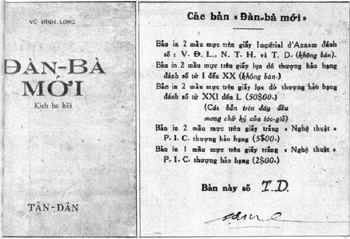 VŨ ĐÌNH LONG
ĐÀN-BÀ
MỚI
Kịch ba hồi
TÂN-DÂN
Các bản «Đàn-bà mới»
Bản in 2 mầu mực trên giấy Impérial d'Annam đánh
số : V. Đ. L., N. T. H. và T. D. (không bán).
Bản in 2 mầu mực trên giấy lụa dó thượng hảo hạng
đánh số từ I đến XX (không bán.)
Bản in 2 mầu mực trên giấy lụa dó thượng hảo hạng
đánh số từ XXI đến L (50$00.)
(Các bản trên đây đều
mang chữ ký của tác-giả)
Bản in 2 mầu mực trên giấy trắng « Nghệ thuật »
P. I. C. thượng hảo hạng (5$00)
Bản in 1 mầu mực trên giấy trắng « Nghệ thuật »
P. I. C. thượng hảo hạng (2$00.)
Bản này số T.D.